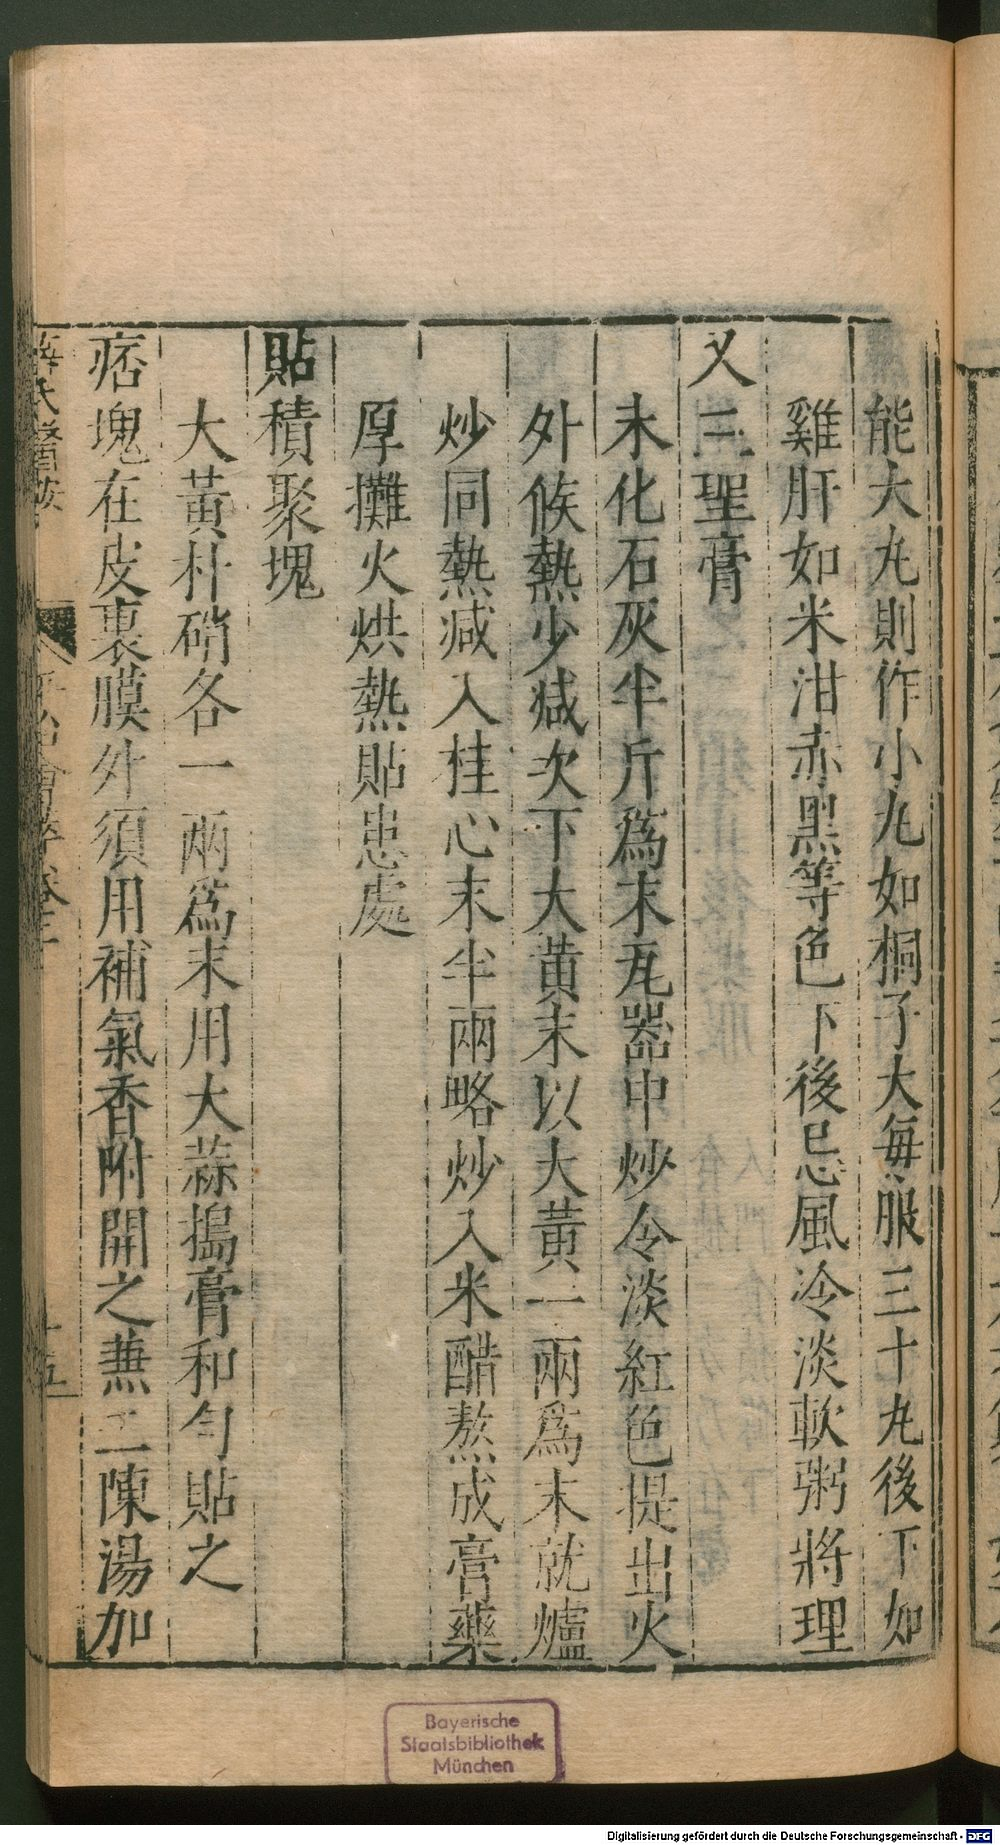 能大丸則作小丸如桐子大每服三十丸後下如
雞肝如米泔赤黑等色下後忌風冷淡軟粥將理
又三聖膏
未化石灰半斤爲末瓦器中炒令淡紅色提出火
外候熱少減次下大黃末以大黃一兩爲末就爐
炒同熱減入桂心末半兩略炒入米醋熬成膏藥
厚攤火烘熱貼患處
貼積聚塊
大黃朴硝各一兩爲末用大蒜搗膏和勻貼之
痞塊在皮裏膜外須用補氣香附開之兼二陳湯加
Bayerische
Staatsbibliothek
München
Digitalisierung gefördert durch die Deutsche Forschungsgemeinschaft - DFG